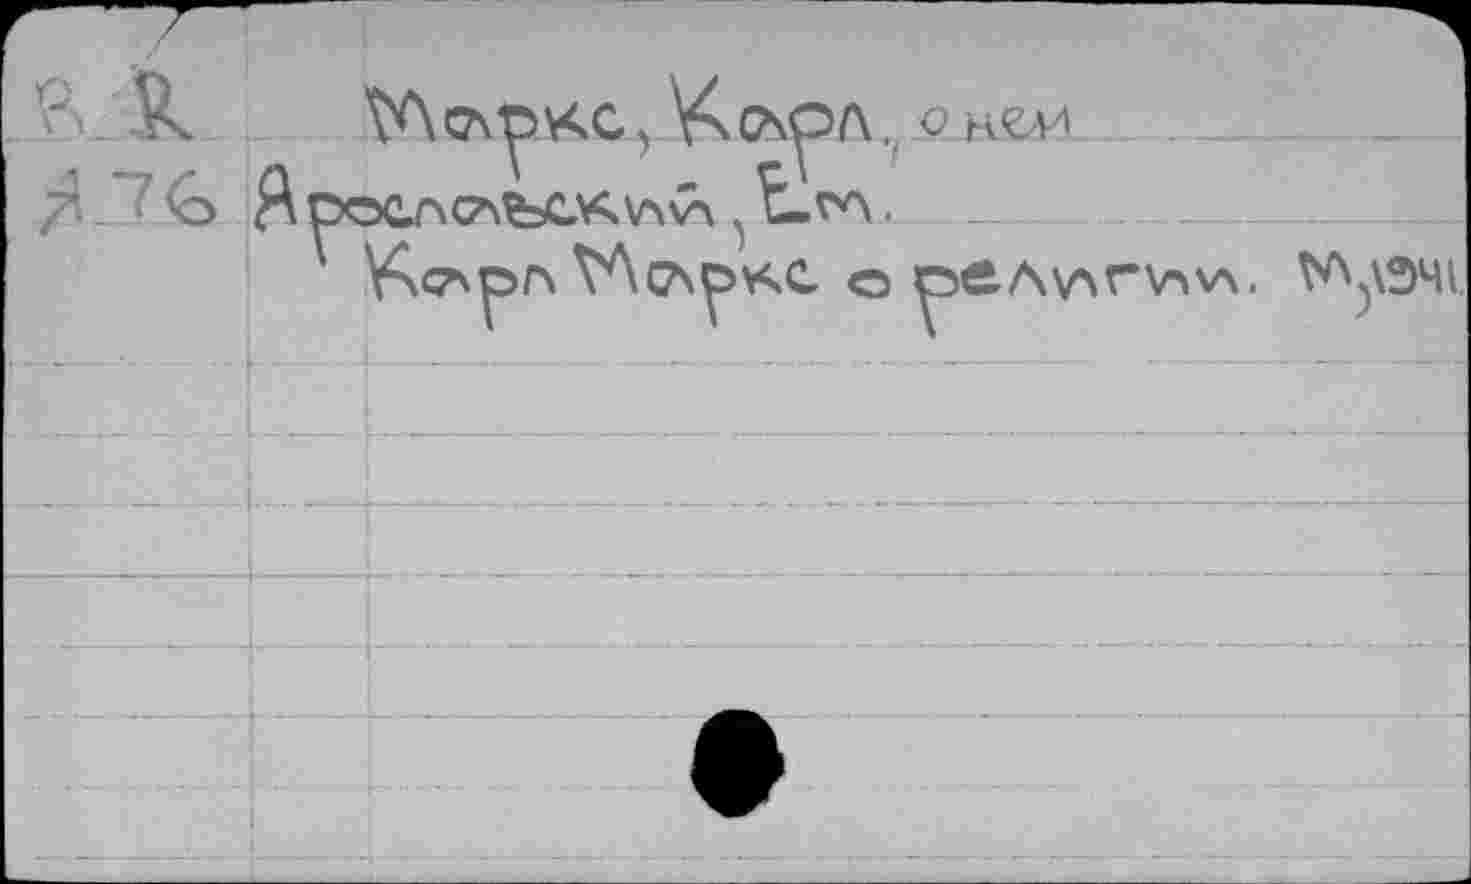 R Маркс, Карл., о нем
Я 76 Ярославский, Ем.
Карл Маркс о религии.